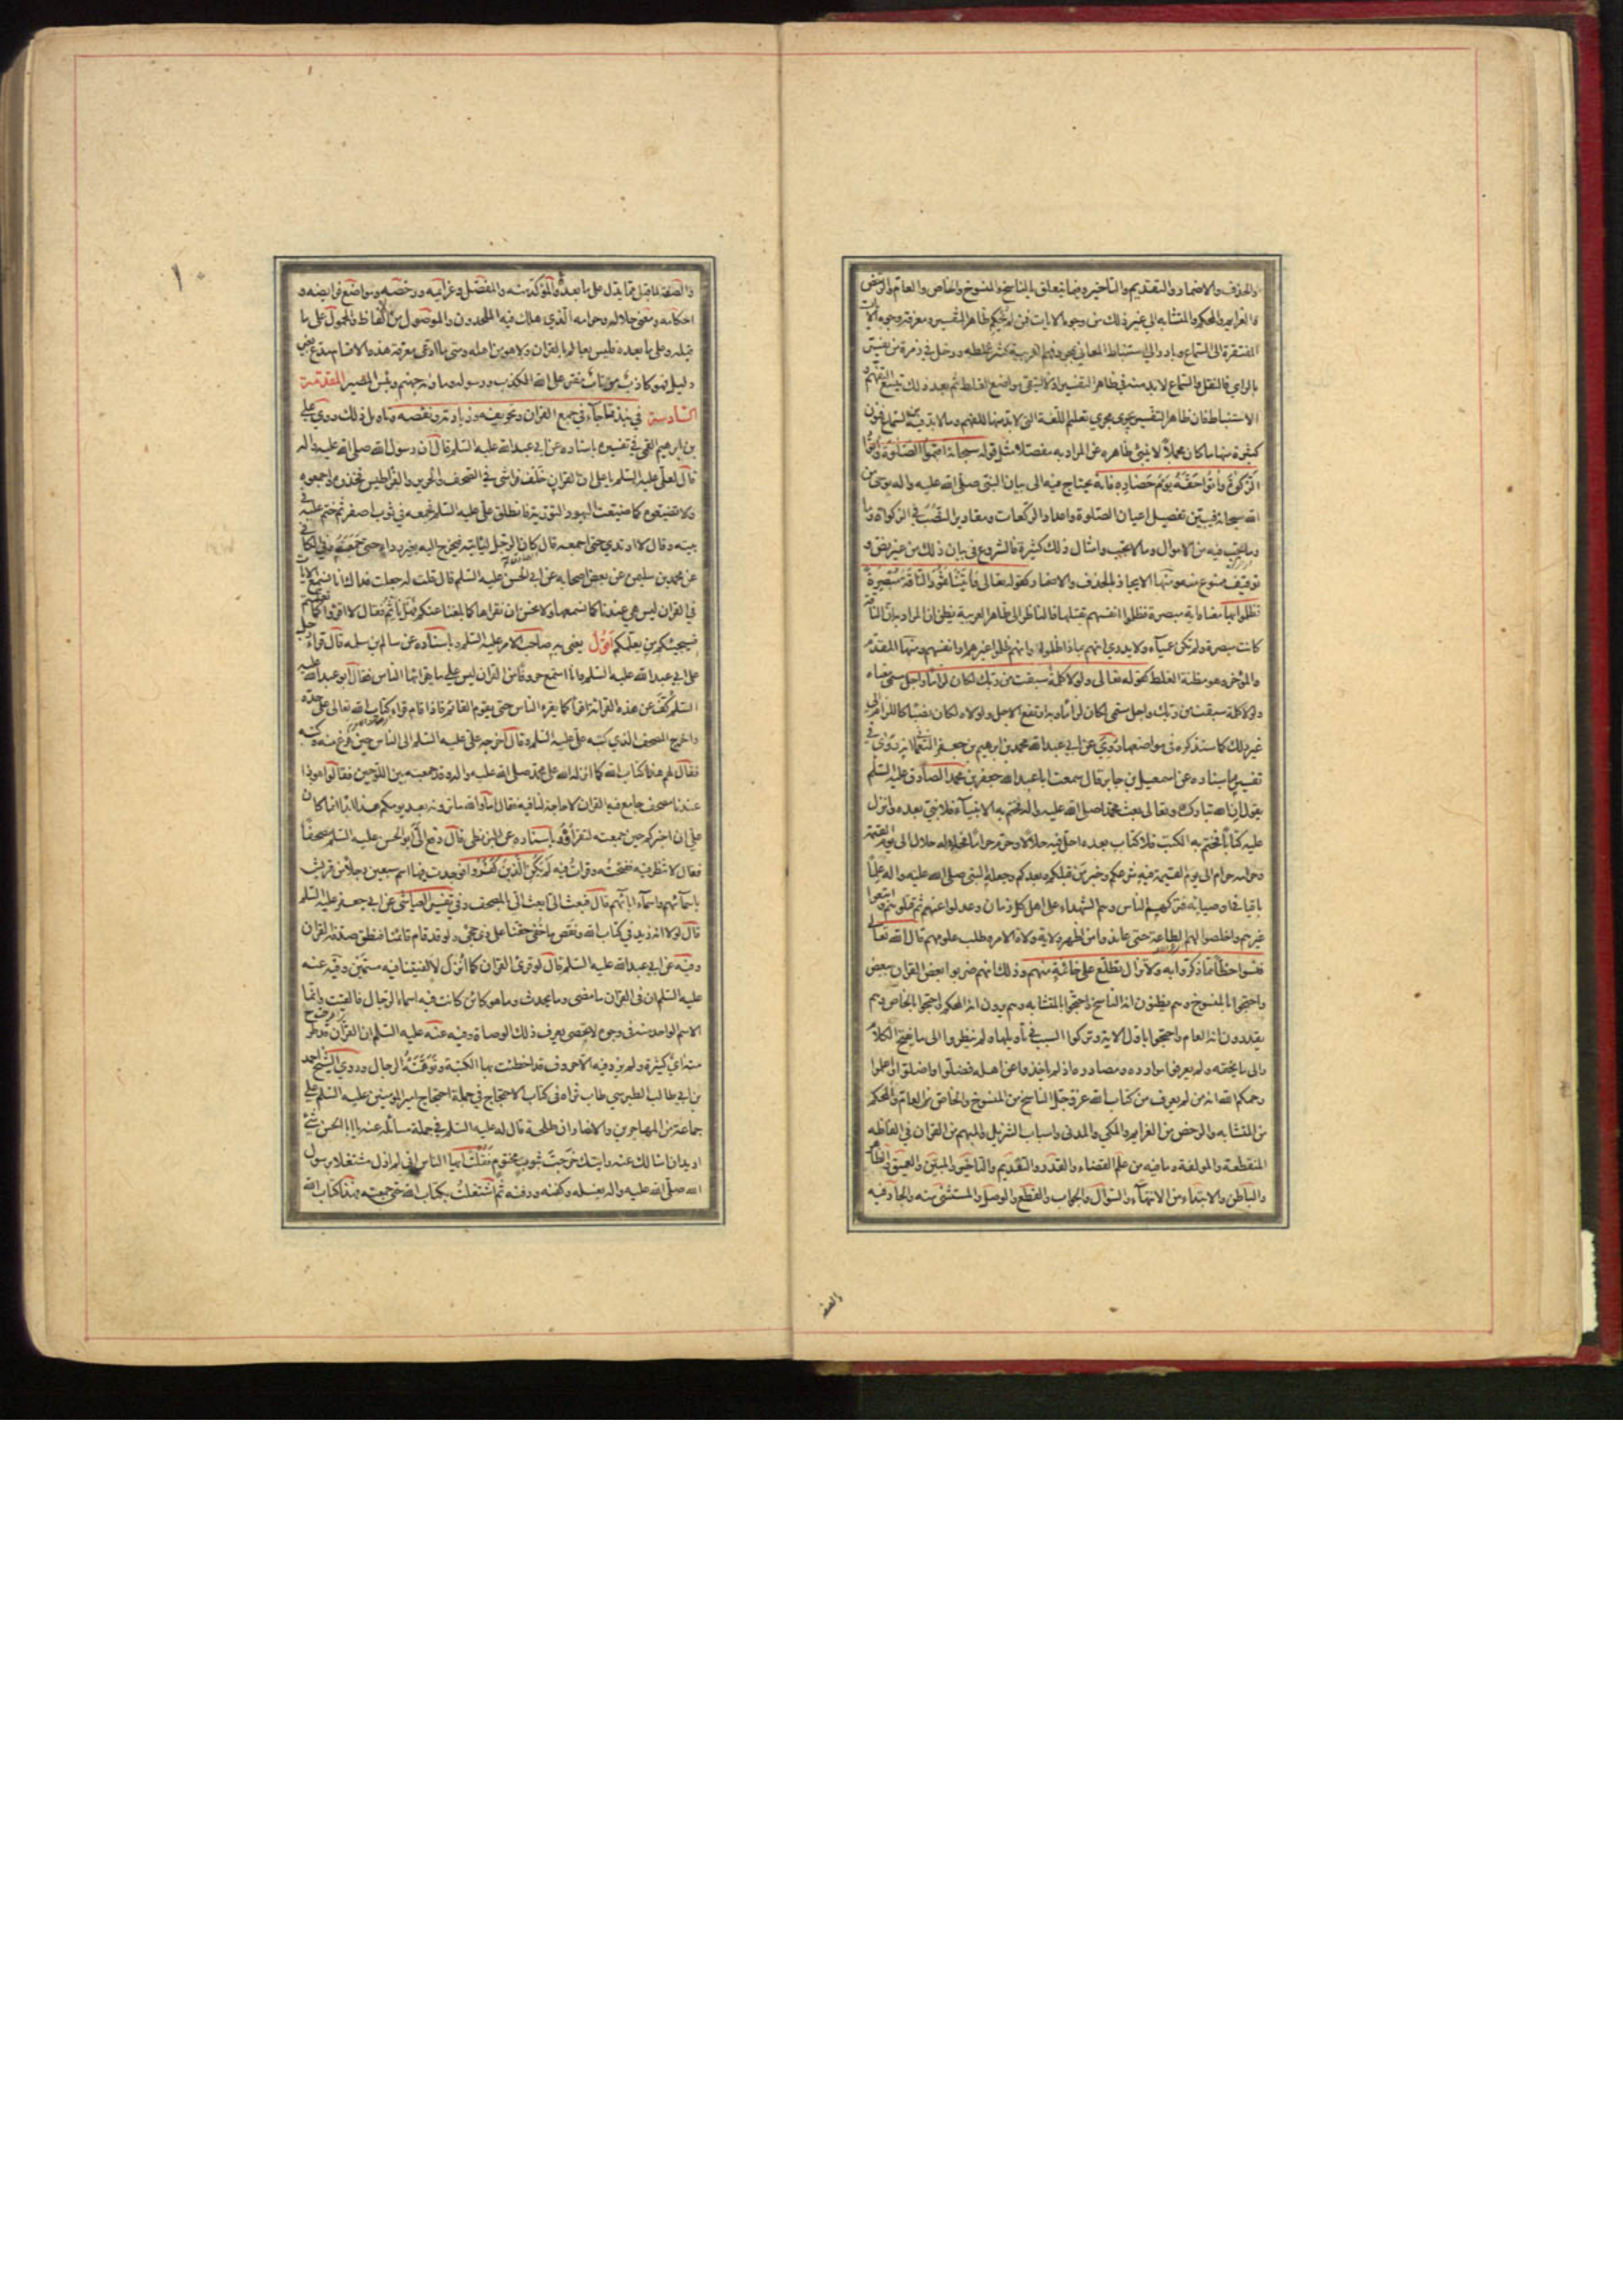 والحذف والاضمار والتقديم والتاخير وفيما يتعلق بالناسخ والمنسوخ والخاص والعام والرخص
والعزايم والمحكم والمتشابه الى غير ذلك من وجوه الايات فمن لم يحكم ظاهر التفسير ومعرفة وجوه الايات
المفتقرة الى السماع وبادر الى استنباط المعاني بمجرد فهم العربية كثر غلطه ودخل في زمرة من يفسر
بالراي فالنقل والسماع لا بد منه في ظاهر التفسير اولا ليتقى مواضع الغلط ثم بعد ذلك يتسع التفهم و
الاستنباط فان ظاهر التفسير يجري مجرى تعليم اللغة التي لا بد منها للفهم وما لا بد فيه من السماع فنون
كثيرة منها ما كان مجملا لا ينبئ ظاهره عن المراد به مفصلا مثل قوله سبحانه اقيموا الصلوة واتوا
الزكوة واتوا حقه يوم حصاده فانه يحتاج فيه الى بيان النبي صلى الله عليه واله بوحي من
الله سبحانه فيبين تفصيل اعيان الصلوة واعداد الركعات ومقادير النصب في الزكوة وما
وما يجب فيه من الاموال وما لا يجب وامثال ذلك كثيرة فالشروع في بيان ذلك من غير نص و
توقيف ممنوع منه ومنها الايجاز بالحذف والاضمار كقوله تعالى فاتينا ثمود الناقة مبصرة
فظلموا بها معناه اية مبصرة فظلموا انفسهم بقتلها فالناظر الى ظاهر العربية يظن ان المراد به ان الناقة
كانت مبصرة ولم تكن عمياء ولا يدري انهم بماذا ظلموا وانهم ظلموا غيرهم او انفسهم ومنها المقدم
والمؤخر وهو مظنة الغلط كقوله تعالى ولولا كلمة سبقت من ربك لكان لزاما واجل مسمى معناه
ولولا كلمة سبقت من ربك واجل مسمى لكان لزاما وبه ارتفع الاجل ولولاه لكان نصبا كاللزام الى
غير ذلك كما ستذكره في مواضعها وروي عن ابي عبدالله محمد بن ابراهيم بن جعفر النعماني انه روى في
تفسيره باسناده عن اسمعيل بن جابر قال سمعت ابا عبدالله جعفر بن محمد الصادق عليه السلم
يقول ان الله تبارك وتعالى بعث محمدا صلى الله عليه واله فختم به الانبياء فلا نبي بعده وانزل
عليه كتابا فختم به الكتب فلا كتاب بعده احل فيه حلالا وحرم حراما فحلاله حلال الى يوم القيمة
وحرامه حرام الى يوم القيمة فيه شرعكم وخبر من قبلكم وبعدكم وجعله النبي صلى الله عليه واله علما
باقيا في اوصيائه فتركهم الناس وهم الشهداء على اهل كل زمان وعدلوا عنهم ثم قتلوهم واتبعوا
غيرهم واخلصوا لهم الطاعة حتى عاندوا من اظهر ولاية ولاة الامر وطلب علومهم قال الله تعالى
فنسوا حظا مما ذكروا به ولا تزال تطلع على خائنة منهم وذلك انهم ضربوا بعض القران ببعض
واحتجوا بالمنسوخ وهم يظنون انه الناسخ واحتجوا بالمتشابه وهم يرون انه المحكم واحتجوا بالخاص وهم
يقدرون انه العام واحتجوا باول الاية وتركوا السبب في تأويلها ولم ينظروا الى ما يفتح الكلام
والى ما يختمه ولم يعرفوا موارده ومصادره اذ لم ياخذوا عن اهله فضلوا واضلوا واعلموا
رحمكم الله انه من لم يعرف من كتاب الله عز وجل الناسخ من المنسوخ والخاص من العام والمحكم
من المتشابه والرخص من العزايم والمكي والمدني واسباب التنزيل والمبهم من القران في الفاظه
المنقطعة والمولفة وما فيه من علم القضاء والقدر والتقديم والتاخير والمبين والعميق والظاهر
والباطن والابتداء من الانتهاء والسؤال والجواب والقطع والوصل والمستثنى منه والجار فيه
والصفة
والصفة لما قبل مما يدل على ما بعد والمؤكد منه والمفصل وعزايمه ورخصه ومواضع فرايضه و
احكامه ومعنى حلاله وحرامه الذي هلك فيه الملحدون والموصول من الالفاظ والمحمول على ما
قبله وعلى ما بعده فليس بعالم بالقران ولا هو من اهله ومتى ما ادعى معرفة هذه الاقسام مدع بغير
دليل فهو كاذب مرتاب مفتر على الله الكذب ورسوله وماواه جهنم وبئس المصير المقدمة
السادسة في نبذ مما جاء في جمع القران وتحريفه وزيادته ونقصه وتاويل ذلك روى علي
بن ابراهيم القمي في تفسيره باسناده عن ابي عبدالله عليه السلم قال ان رسول الله صلى الله عليه واله
قال لعلي عليه السلم يا علي ان القران خلف فراشي في الصحف والحرير والقراطيس فخذوه واجمعوه
ولا تضيعوه كما ضيعت اليهود التورية فانطلق علي عليه السلم فجمعه في ثوب اصفر ثم ختم عليه في
بيته وقال لا ارتدي حتى اجمعه قال كان الرجل لياتيه فيخرج اليه بغير رداء حتى جمعه وفي الكافي
عن محمد بن سليمن عن بعض اصحابه عن ابي الحسن عليه السلم قال قلت له جعلت فداك انا نسمع الايات
في القران ليس هي عندنا كما نسمعها ولا نحسن ان نقراها كما بلغنا عنكم فهل نأثم فقال لا اقروا كما تعلمتم
فسيجيئكم من يعلمكم اقول يعني به صاحب الامر عليه السلم وباسناده عن سالم بن سلمه قال قرأ رجل
على ابي عبدالله عليه السلم وانا استمع حروفا من القران ليس على ما يقراها الناس فقال ابو عبدالله عليه
السلم كف عن هذه القرائة اقرأ كما يقره الناس حتى يقوم القائم فاذا قام قرء كتاب الله تعالى على حده
واخرج المصحف الذي كتبه علي عليه السلم وقال اخرجه علي عليه السلم الى الناس حين فرغ منه وكتبه
فقال لهم هذا كتاب الله كما انزله الله على محمد صلى الله عليه واله وقد جمعته بين اللوحين فقالوا هوذا
عندنا مصحف جامع فيه القران لا حاجة لنا فيه فقال اما والله ما ترونه بعد يومكم هذا ابدا انما كان
علي ان اخبركم حين جمعته لتقرأوه وباسناده عن البزنطي قال دفع الي ابو الحسن عليه السلم مصحفا
فقال لا تنظر فيه ففتحته وقرات فيه لم يكن الذين كفروا فوجدت فيها اسم سبعين رجلا من قريش
باسمائهم واسماء ابائهم قال فبعث الي ابعث الي بالمصحف وفي تفسير العياشي عن ابي جعفر عليه السلم
قال لولا انه زيد في كتاب الله ونقص ما خفي حقنا على ذي حجى ولو قد قام قائمنا فنطق صدقه القران
وفيه عن ابي عبدالله عليه السلم قال لو قرئ القران كما انزل لالفيتنا فيه مسمين وفيه عنه
عليه السلم ان في القران ما مضى وما يحدث وما هو كائن كانت فيه اسماء الرجال فالقيت وانما
الاسم الواحد منه في وجوه لا تحصى يعرف ذلك الوصاة وفيه عنه عليه السلم ان القران قد طرح
منه اي كثيرة ولم يزد فيه الا حروف قد اخطئت بها الكتبة وتوهمتها الرجال وروى الشيخ احمد
بن ابي طالب الطبرسي طاب ثراه في كتاب الاحتجاج في جملة احتجاج امير المومنين عليه السلم على
جماعة من المهاجرين والانصار ان طلحة قال له عليه السلم في جملة مسائله عنه يا ابا الحسن شئ
اريد ان اسالك عنه رايتك خرجت بثوب مختوم فقلت ايها الناس اني لم ازل مشتغلا برسول
الله صلى الله عليه واله بغسله وكفنه ودفنه ثم اشتغلت بكتاب الله حتى جمعته فهذا كتاب الله
١٠